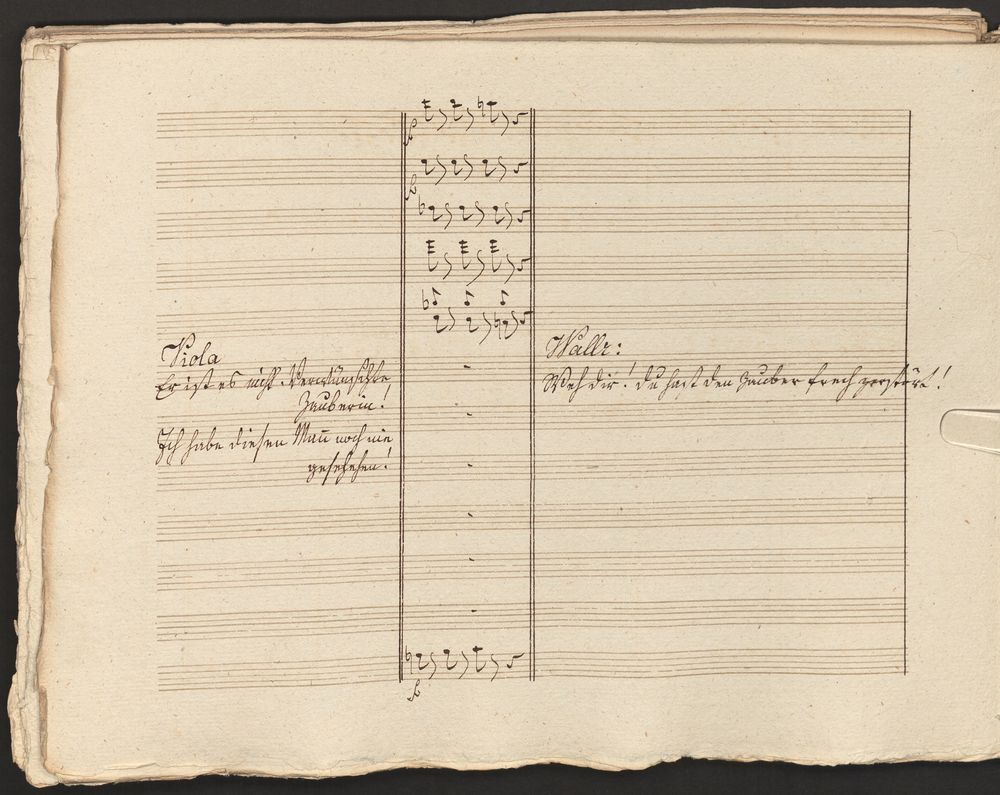 Viola
Er ist es nicht. Verwünschte
Zauberin!
Ich habe diesen Mañ noch nie
gesehen!
Walli:
Weh dir! du hast den Zauber frech zerstört!